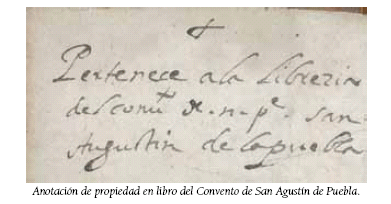 Pertenece a la Libreria
del conu.to de n. p.e san
Augustin de la puebla
Anotación de propiedad en libro del Convento de San Agustín de Puebla.